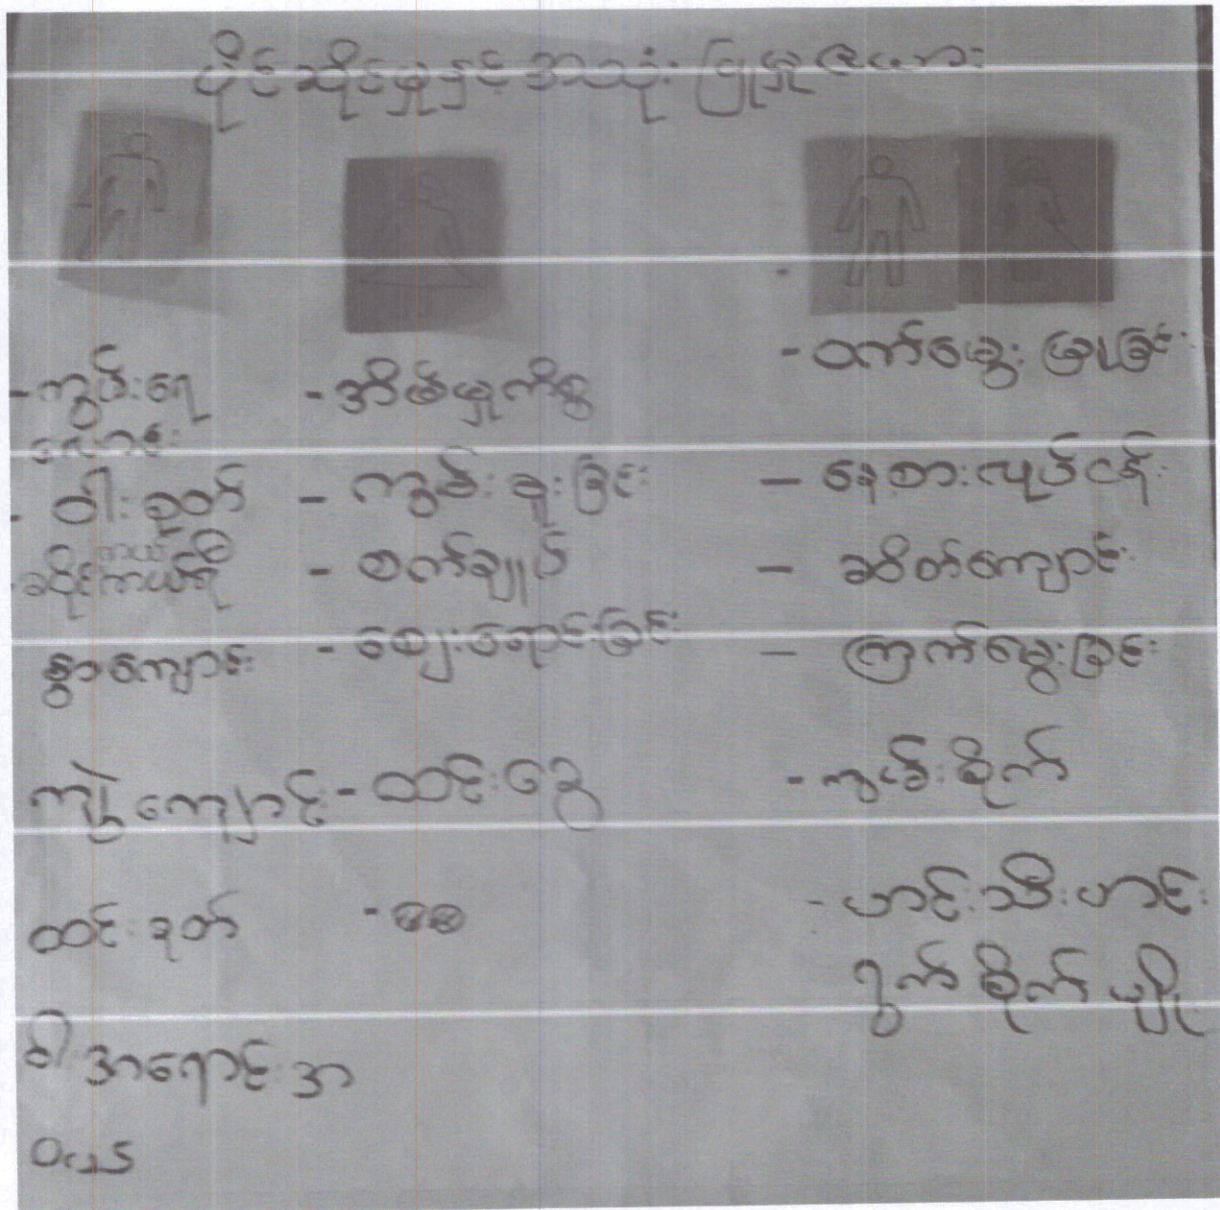 ပိုင်ဆိုင်မှုနှင့် အသုံးပြုမှု ဇယား
- ကွမ်းရေ
ရောင်း
- ဝါးခုတ်
- ဆိုင်ကယ်ကယ်ရီ
နွားကျောင်း
ကျွဲကျောင်း
ထင်းခုတ်
ဝါးအရောင်းအ
ဝယ်
- အိမ်မှုကိစ္စ
- ကွမ်းခူးခြင်း
- စက်ချုပ်
- ဈေးရောင်းခြင်း
- ထင်းခွေ
- ဝက်မွေးမြူခြင်း
- နေ့စားလုပ်ငန်း
- ဆိတ်ကျောင်း
- ကြက်မွေးခြင်း
- ကွမ်းစိုက်
- ဟင်းသီးဟင်း
ရွက်စိုက်ပျိုး